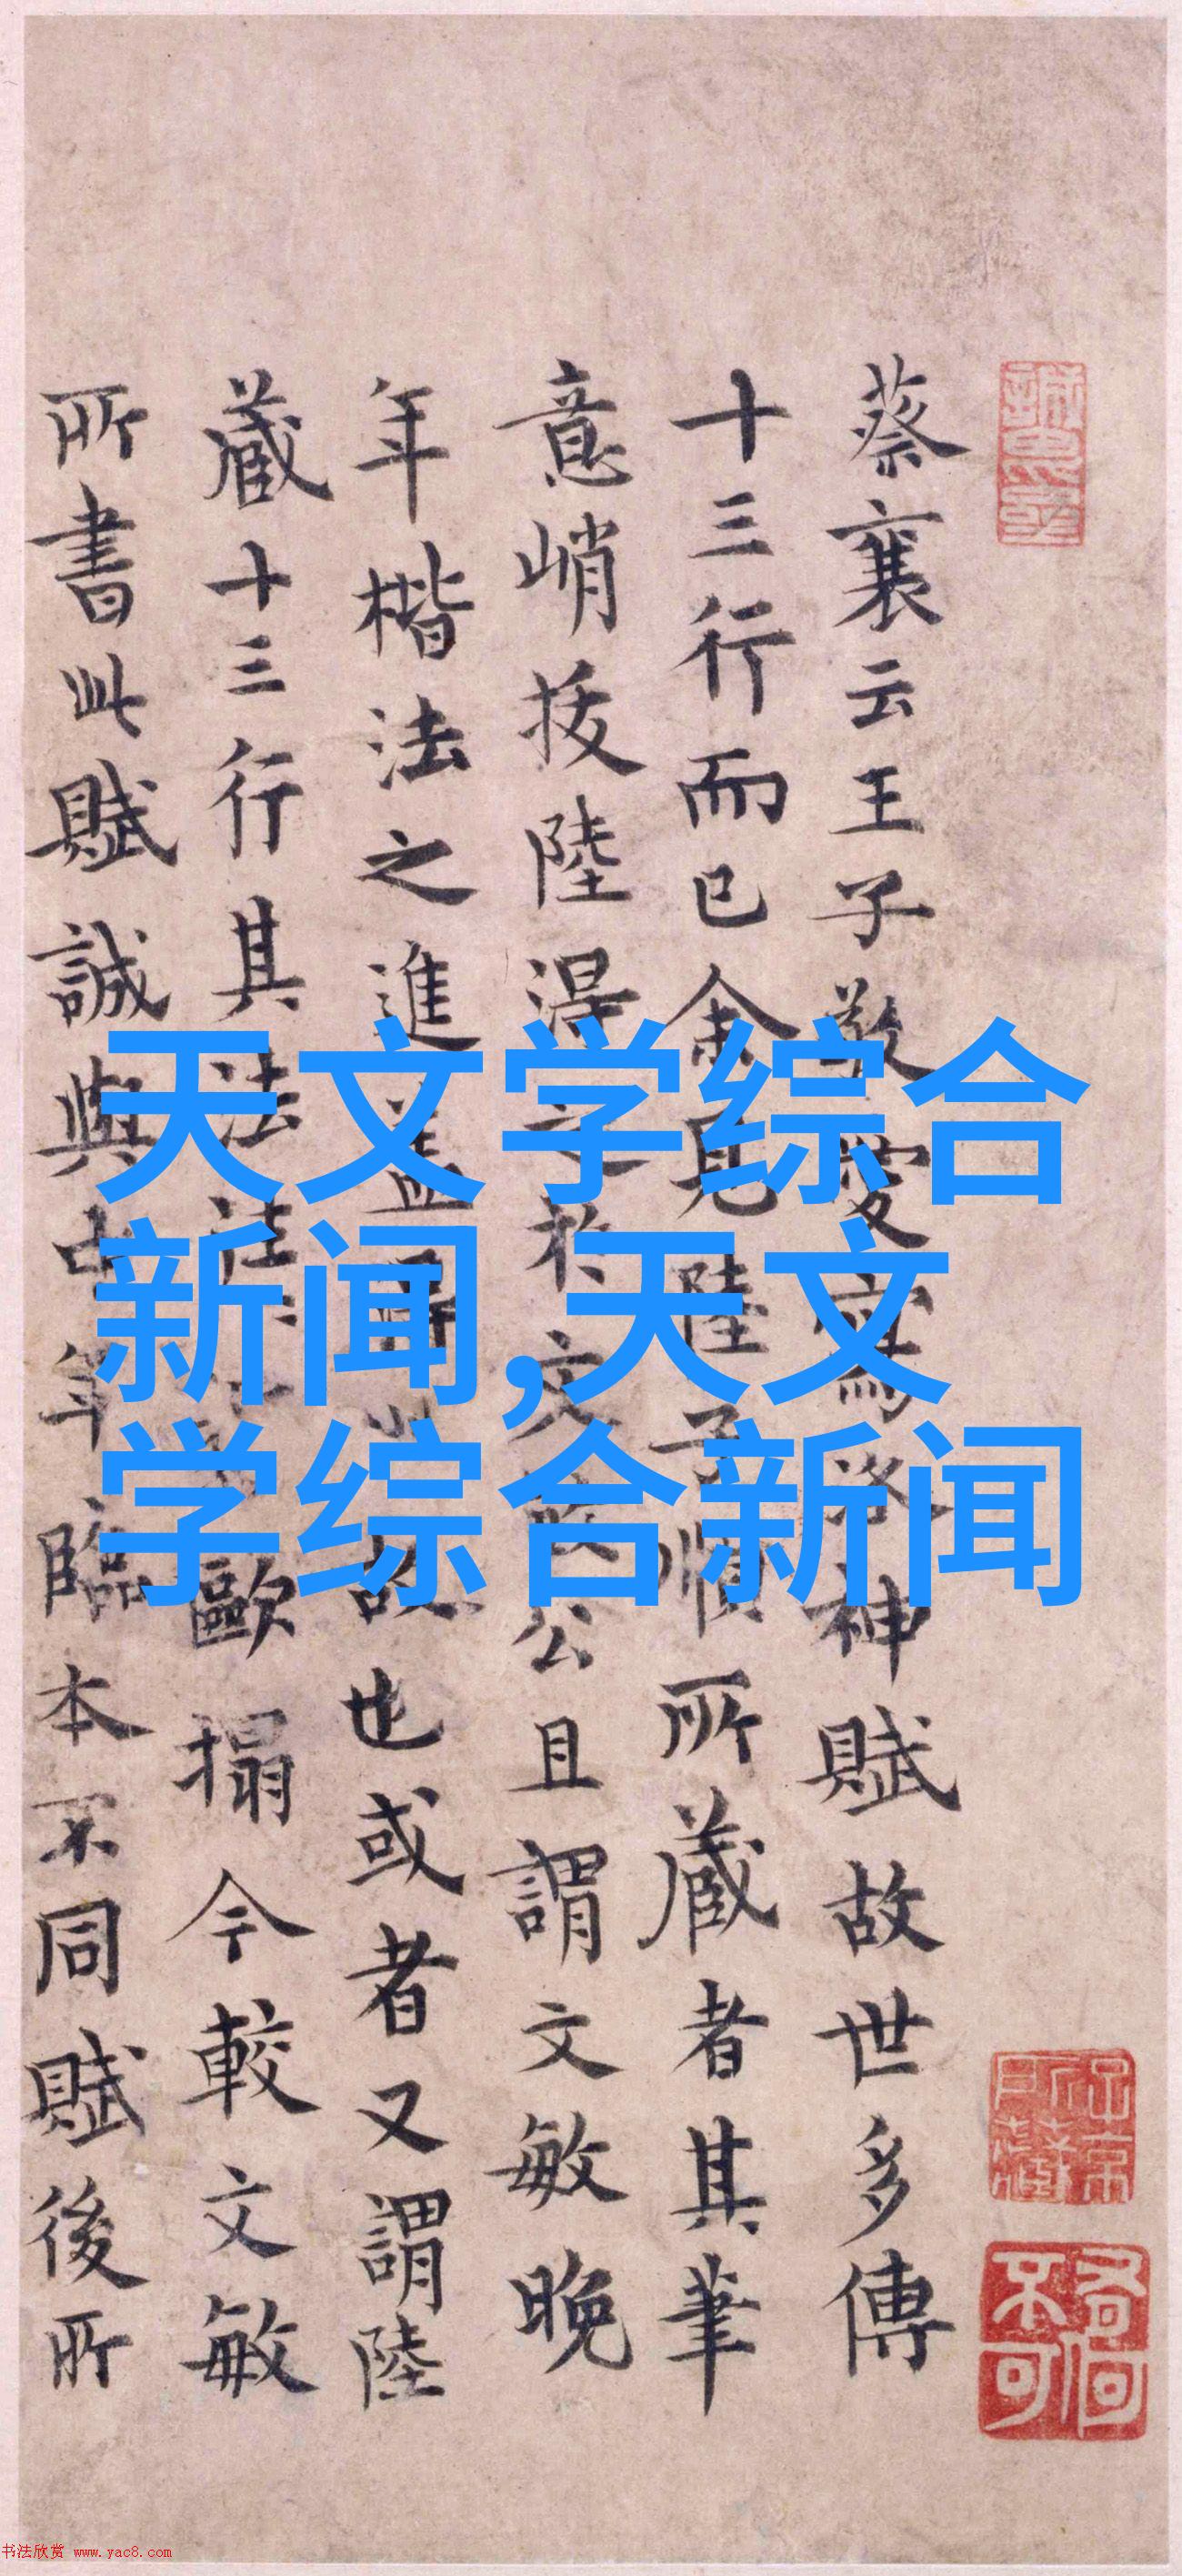 蔡襄云王子敬愛寫洛神賦故世多傳
十三行而已余見陸子順所藏者其筆
意峭拔陸得之於文敏公且謂文敏晚
年楷法之進盖得此故也或者又謂陸
藏十三行其法歐搨今較文敏
所書此賦誠與年臨本不同賦後所
天文学综合
新闻,天文
学综合新闻
书法欣赏 www.yac8.com